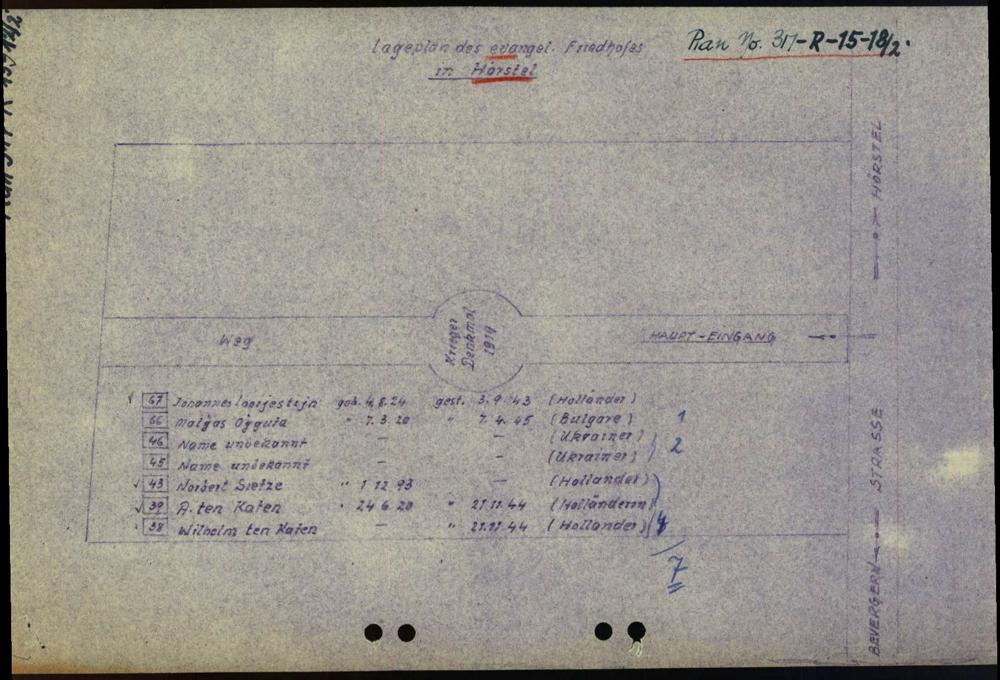 Lageplan des evangel. Friedhofes
in Hörstel
Plan No. 317-R-15-18/2.
HÖRSTEL
Weg
Krieger
Denkmal
1919
HAUPT-EINGANG
67 Johannes geb. 4.8.24 gest. 3.9.43 (Holländer)
66 Malgas Oggula " 7.3.20 " 7.4.45 (Bulgare) 1
46 Name unbekannt — — (Ukrainer) 2
45 Name unbekannt — — (Ukrainer)
43 Norbert Sietze " 1 12 93 — (Holländer)
39 A. ten Katen " 24 6 20 " 21.11.44 (Holländerin)
38 Wilhelm ten Katen — " 21.11.44 (Holländer) 4
7
STRASSE
BEVERGERN